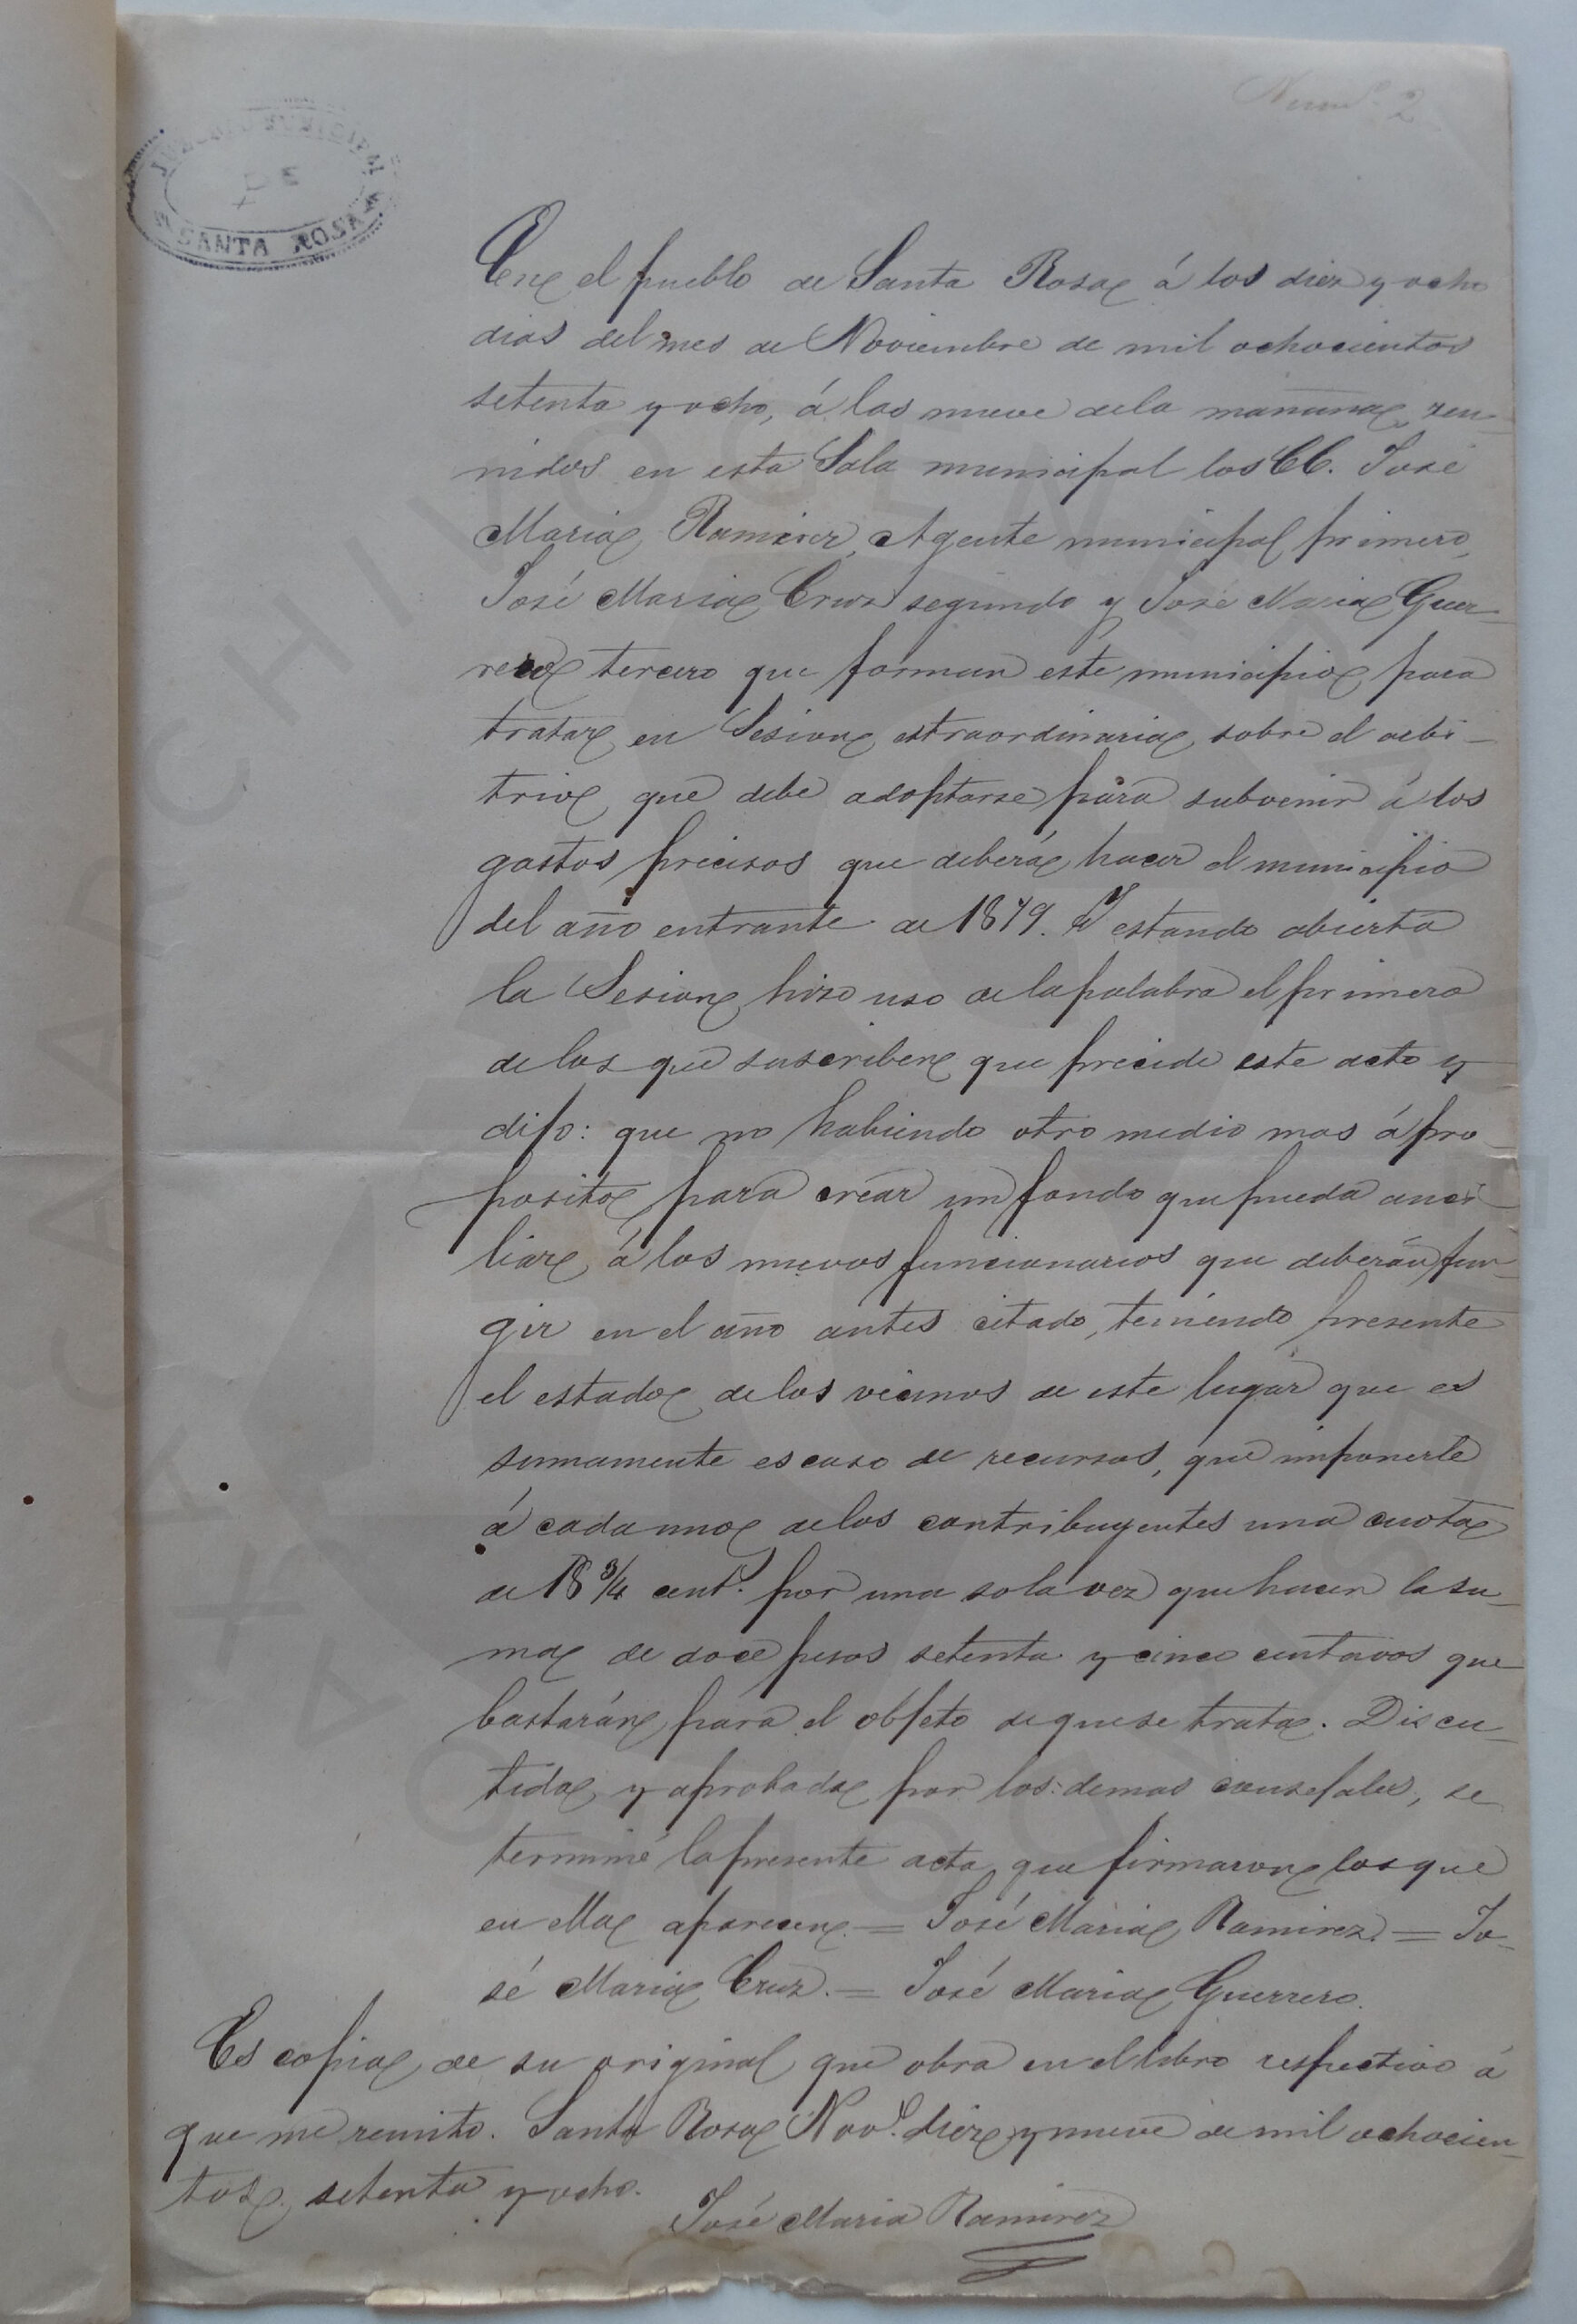 Num.º 2
SANTA ROSA
En el pueblo de Santa Rosa á los diez y ocho
dias del mes de Noviembre de mil ochocientos
setenta y ocho, á las nueve dela mañana, reu-
nidos en esta Sala municipal los CC. José
Maria Ramirez, Agente municipal primero,
José Maria Cruz segundo y José Maria Guer-
rero tercero que forman este municipio, para
tratar en Sesion extraordinaria, sobre el arbi-
trio que debe adoptarse para subvenir á los
gastos precisos que deberá hacer el municipio
del año entrante de 1879. Y estando abierta
la Sesion, hizo uso de la palabra el primero
de los que suscriben que precide este acto y
dijo: que no habiendo otro medio mas á pro
posito para crear un fondo que pueda auci-
liar á los nuevos funcionarios que deberán fun-
gir en el año antes citado, teniendo presente
el estado de los vecinos de este lugar que es
sumamente escaso de recursos, que imponerle
á cada uno de los contribuyentes una cuota
de 18 3/4 cent.s por una sola vez que hacen la su-
ma de doce pesos setenta y cinco centavos que
bastarán para el objeto de que se trata. Discu-
tida y aprobada por los demas consejales, se
terminó la presente acta que firmaron los que
en ella aparecen. = José Maria Ramirez. = Jo-
sé Maria Cruz. = José Maria Guerrero.
Es copia de su original que obra en el libro respectivo á
que me remito. Santa Rosa Nov.e diez y nueve de mil ochocien-
tos setenta y ocho.
José Maria Ramirez